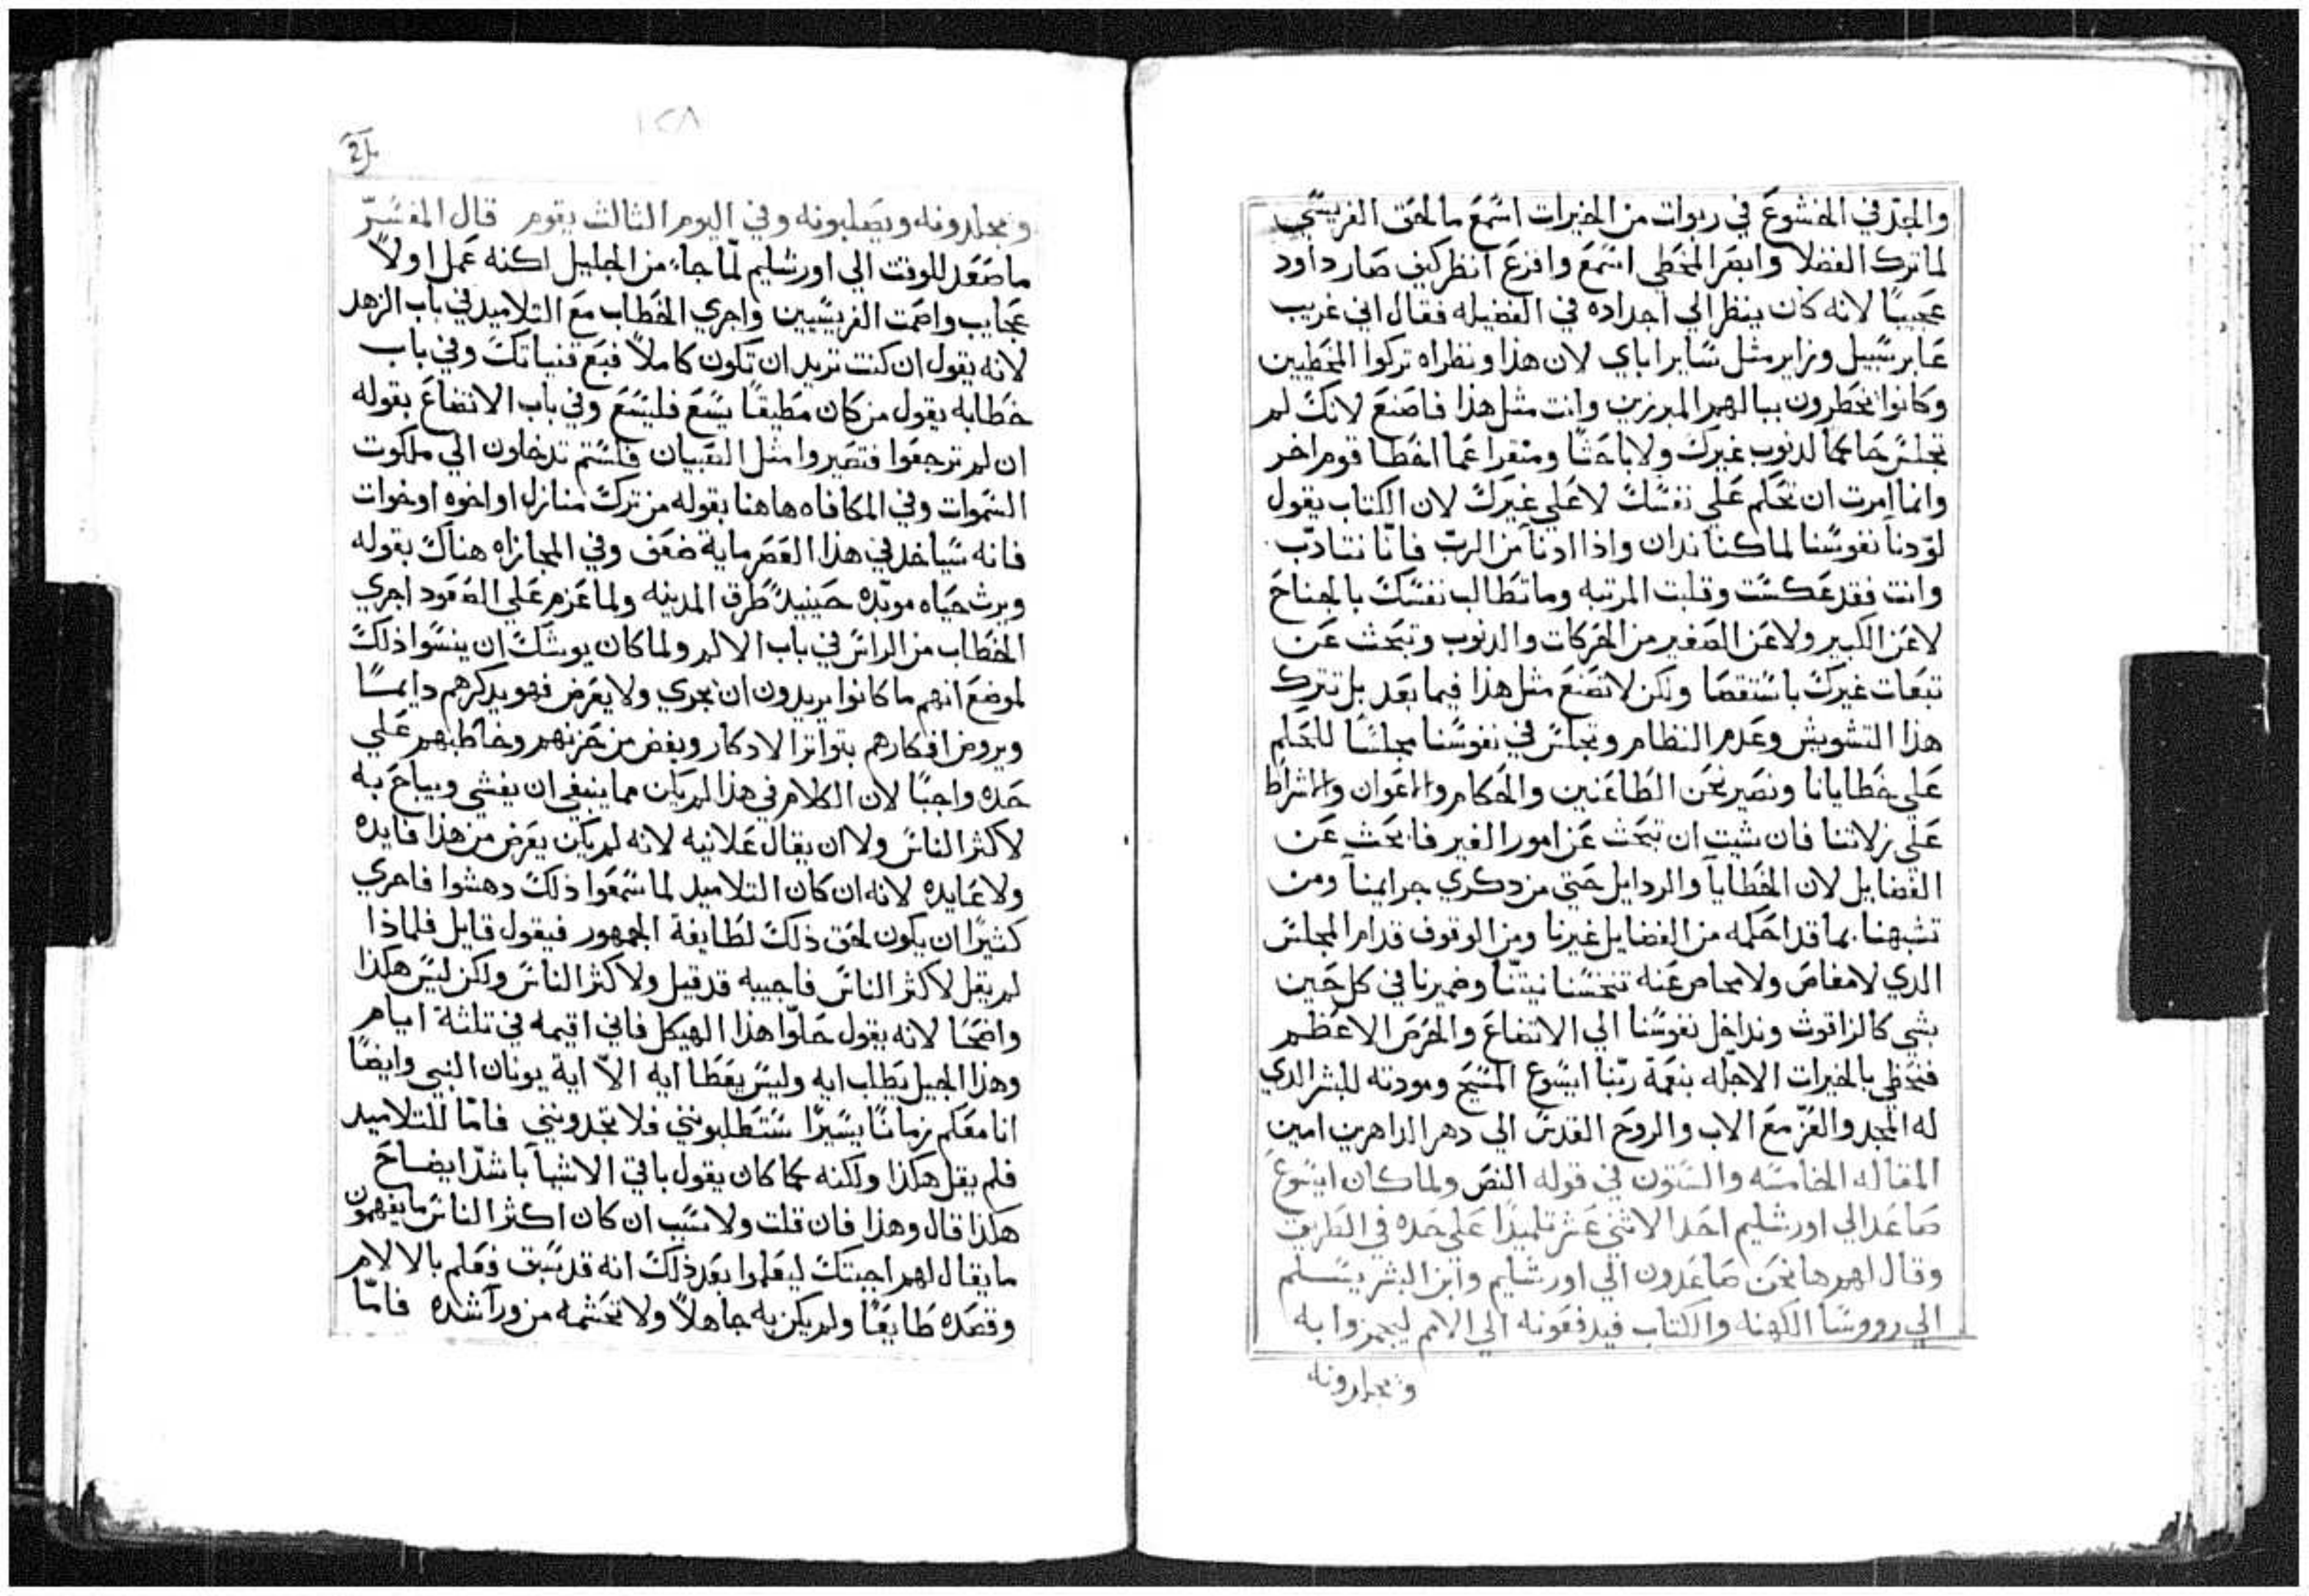 والجد في الخشوع في ربوات من الخيرات اسمع ما لحق الفريسي
لما ترك الفضلا وابصر المخطي اسمع وافزع انظر كيف صار داود
عجيبًا لانه كان ينظر الي اجداده في الفضيله فقال اني غريب
عابر سبيل وزاير مثل ساير اباي لان هذا ونظراه تركوا المخطيين
وكانوا يخطرون ببالهم المبرزين وانت مثل هذا فاصنع لانك لم
تجلس حاكما لدنوب غيرك ولا باحثا ومنقرا عما اخطا قوم اخر
وانما امرت ان تحكم علي نفسك لا علي غيرك لان الكتاب يقول
لو دنا نفوسنا لما كنا ندان واذا ادنا من الرب فانّا نتادّب
وانت فقد عكست وقلبت المرتبه وما تطالب نفسك بالجناح
لا عن الكبير ولا عن الصغير من الحركات والدنوب وتبحث عن
تبعات غيرك باستقصا ولكن لا تصنع مثل هذا فيما بعد بل تترك
هذا التشويش وعدم النظام وتجلس في نفوسنا مجلسًا للحكم
علي خطايانا ونصير نحن الطاعنين والحكام والاعوان والاشراط
علي زلاتنا فان شيت ان تبحث عن امور الغير فابحث عن
الفضايل لان الخطايا والردايل حتي من دكري جرايمنا ومن
تشبهنا بما قد احكمه من الفضايل غيرنا ومن الوقوف قدام المجلس
الدي لا مفاص ولا محاص عنه تنخسنا نيتنا وضميرنا في كل حين
بشي كالزاقوث وندا خل نفوسنا الي الاتضاع والحرص الاعظم
فنحظي بالخيرات الاجلّه بنعمة ربّنا ايسوع المسيح ومودته للبشر الدي
له المجد والعزّ مع الاب والروح القدس الي دهر الداهرين امين
المقاله الخامسه والستون في قوله النص ولما كان ايسوع
صاعدا الي اورشليم اخد الاثني عشر تلميدًا علي حده في الطريق
وقال لهم ها نحن صاعدون الي اورشليم وابن البشر يسلم
الي رووسا الكهنه والكتاب فيدفعونه الي الامم ليهزوا به
ويجلدونه
١٢٨
ويجلدونه ويصلبونه وفي اليوم الثالث يقوم قال المفسّر
ما صعد للوقت الي اورشليم لمّا جاء من الجليل لكنه عمل اولاً
عجايب واصمت الفريسيين واجري الخطاب مع التلاميد في باب الزهد
لانه يقول ان كنت تريد ان تكون كاملاً فبع قنياتك وفي باب
خطابه يقول من كان مطيقًا يسع فليسع وفي باب الاتضاع بقوله
ان لم ترجعوا فتصيروا مثل الصبيان فلستم تدخلون الي ملكوت
السموات وفي المكافاه هاهنا بقوله من ترك منازل او اخوه او خوات
فانه سياخد في هذا العصر ماية ضعف وفي المجازاه هناك بقوله
ويرث حياه موبّده حينيدٍ طرق المدينه ولما عزم علي الصعود اجري
الخطاب من الراس في باب الالم ولما كان يوشك ان ينسوا ذلك
لموضع انهم ما كانوا يريدون ان يجري ولا يعرض فهو يدكرهم دايمًا
ويروض افكارهم بتواتر الادكار ويغض من حزنهم وخاطبهم علي
حده واجبًا لان الكلام في هذا لم يكن مما ينبغي ان يفشي ويباح به
لاكثر الناس ولا ان يقال علانيه لانه لم يكن يعرض من هذا فايده
ولا عايده لانه ان كان التلاميد لما سمعوا ذلك دهشوا فاحري
كثيرًا ان يكون لحق ذلك لطايفة الجمهور فيقول قايل فلماذا
لم يقل لاكثر الناس فاجيبه قد قيل ولاكثر الناس ولكن ليس هكذا
واضحًا لانه يقول حلّوا هذا الهيكل فاني اقيمه في ثلثة ايام
وهذا الجيل يطلب ايه وليس يعطا ايه الاّ اية يونان النبي وايضًا
انا معكم زمانًا يسيرًا ستطلبونني فلا تجدونني فامّا للتلاميد
فلم يقل هكذا ولكنه كما كان يقول باقي الاشيا باشدّ ايضاح
هكذا قال وهذا فان قلت ولا سبب ان كان اكثر الناس ما يفهمون
ما يقال لهم اجبتك ليعلموا بعد ذلك انه قد سبق فعلم بالالام
وقصده طايعًا ولم يكن به جاهلاً ولا تحشمه من ورا شده فامّا